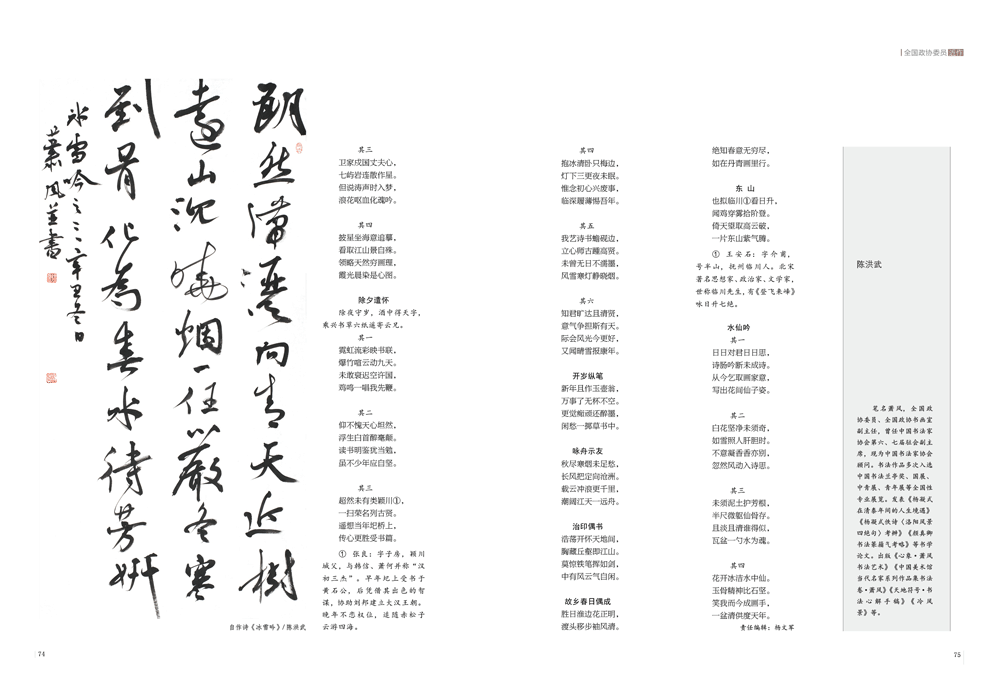 全国政协委员 近作
朗然满灑向青天近树
远山沉晓烟一任以严冬寒
到骨化为春水待芳妍
冰雪吟之三 辛丑冬日
萧风并书
自作诗《冰雪吟》/陈洪武
其三
卫家戍国丈夫心,
七屿岩连散作星。
但说涛声时入梦,
浪花呕血化魂吟。
其四
披星坐海意追摹,
看取江山景自殊。
领略天然穷画理,
霞光晨染是心图。
除夕遣怀
除夜守岁,酒中得天字,
乘兴书草六纸遥寄云兄。
其一
霓虹流彩映书联,
爆竹喧云动九天。
未敢衰迟空许国,
鸡鸣一唱我先鞭。
其二
仰不愧天心坦然,
浮生白首醉毫颠。
读书明鉴犹当勉,
虽不少年应自坚。
其三
超然未有类颍川①,
一扫荣名列古贤。
遥想当年圯桥上,
传心更胜受书篇。
① 张良:字子房,颍川
城父,与韩信、萧何并称“汉
初三杰”。早年圯上受书于
黄石公,后凭借其出色的智
谋,协助刘邦建立大汉王朝。
晚年不恋权位,追随赤松子
云游四海。
74
其四
抱冰清卧只梅边,
灯下三更夜未眠。
惟念初心兴废事,
临深履薄惕吾年。
其五
我艺诗书蟾砚边,
立心师古踵高贤。
未曾无日不濡墨,
风雪寒灯静晓烟。
其六
知君旷达且清贤,
意气争担斯有天。
际会风光今更好,
又闻晴雪报康年。
开岁纵笔
新年且作玉壶翁,
万事了无怀不空。
更觉痴顽还醉墨,
闲愁一掷草书中。
咏舟示友
秋尽寒烟未足愁,
长风把定向沧洲。
载云冲浪更千里,
潮阔江天一远舟。
治印偶书
浩荡开怀天地间,
胸藏丘壑即江山。
莫惊铁笔挥如剑,
中有风云气自闲。
故乡春日偶成
胜日漼边花正明,
渡头移步袖风清。
绝知春意无穷尽,
如在丹青画里行。
东 山
也拟临川①看日升,
闻鸡穿雾拾阶登。
倚天望取高云破,
一片东山紫气腾。
① 王安石:字介甫,
号半山,抚州临川人。北宋
著名思想家、政治家、文学家,
世称临川先生,有《登飞来峰》
咏日升七绝。
水仙吟
其一
日日对君日日思,
诗肠吟断未成诗。
从今乞取画家意,
写出花间仙子姿。
其二
白花坚净未须奇,
如雪照人肝胆时。
不意凝香香亦别,
忽然风动入诗思。
其三
未须泥土护芳根,
半尺微躯仙骨存。
且淡且清谁得似,
瓦盆一勺水为魂。
其四
花开冰洁水中仙。
玉骨精神比石坚。
笑我而今成画手,
一盆清供度天年。
责任编辑:杨文军
陈洪武
笔名萧风,全国政
协委员、全国政协书画室
副主任,曾任中国书法家
协会第六、七届驻会副主
席,现为中国书法家协会
顾问。书法作品多次入选
中国书法兰亭奖、国展、
中青展、青年展等全国性
专业展览。发表《杨凝式
在清泰年间的人生境遇》
《杨凝式佚诗〈洛阳风景
四绝句〉考辨》《颜真卿
书法篆籀气考略》等书学
论文。出版《心象·萧风
书法艺术》《中国美术馆
当代名家系列作品集书法
卷·萧风》《天地符号·书
法心解手稿》《冷风
景》等。
75